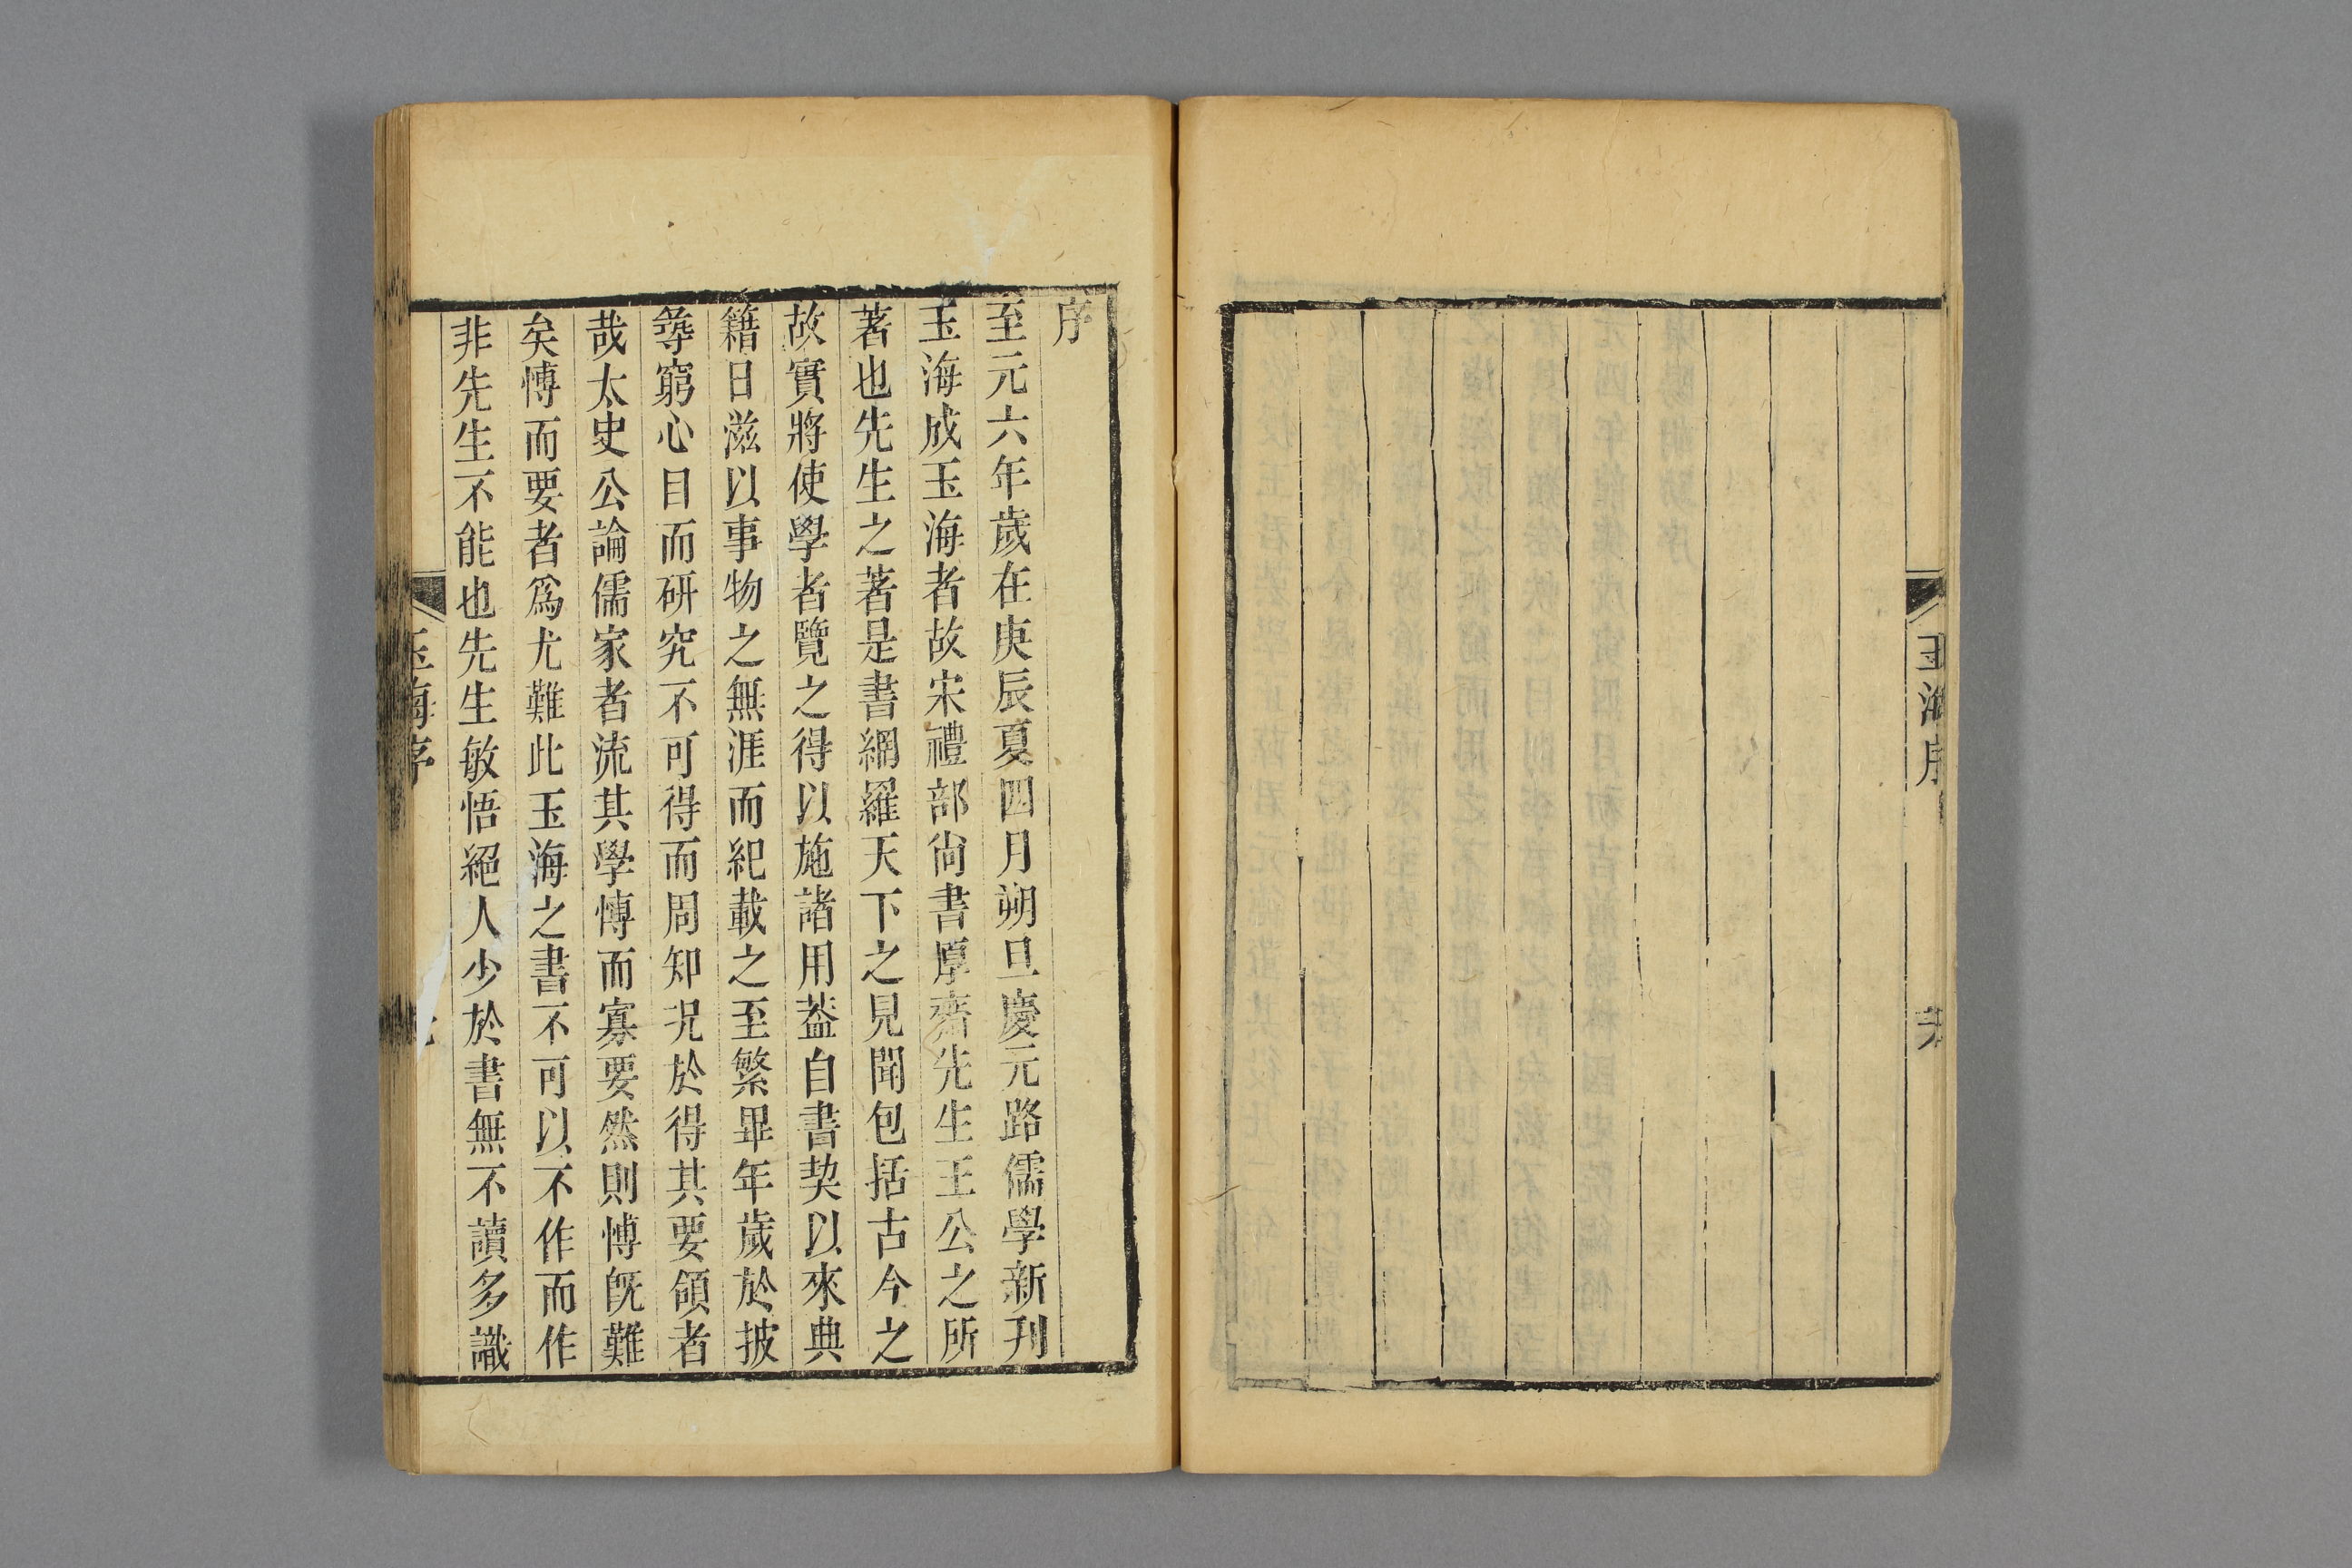 玉海序
序
至元六年歲在庚辰夏四月朔旦慶元路儒學新刊
玉海成玉海者故宋禮部尙書厚齋先生王公之所
著也先生之著是書網羅天下之見聞包括古今之
故實將使學者覽之得以施諸用葢自書契以來典
籍日滋以事物之無涯而紀載之至繁畢年歲於披
㝷窮心目而研究不可得而周知况於得其要領者
哉太史公論儒家者流其學慱而寡要然則慱旣難
矣慱而要者爲尤難此玉海之書不可以不作而作
非先生不能也先生敏悟絕人少於書無不讀多識
玉海序